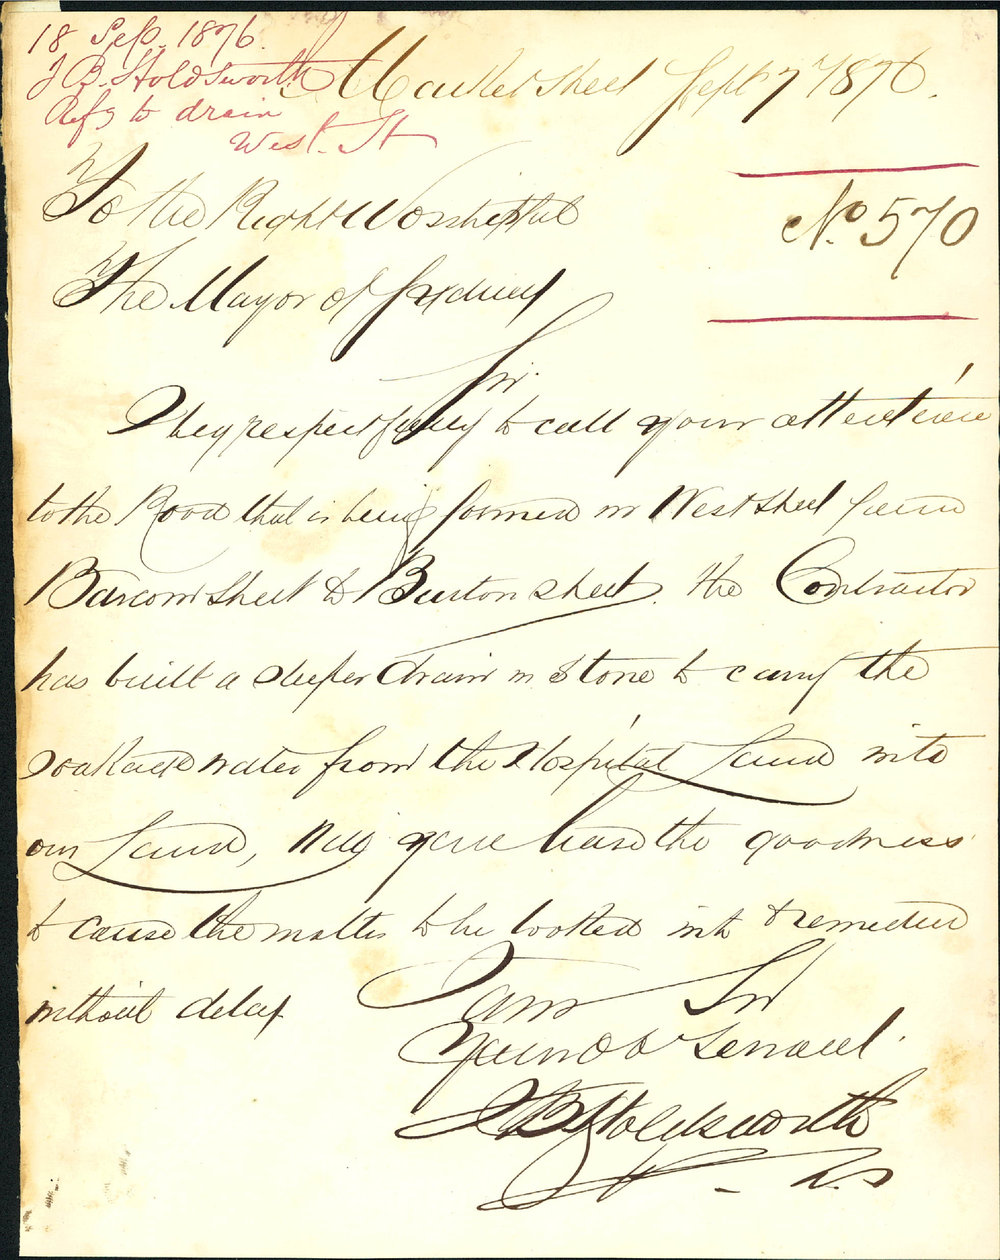 18 Sep. 1876.
J B. Holdsworth
Refg to drain
West. St
Market Street Sept 7 1876.
No 570
To the Right Worshipful
The Mayor of Sydney
Sir.
I beg respectfully to call your attention
to the Road that is being formed in West Street from
Barcom Street to Burton Street. the Contractor
has built a deeper drain in Stone to carry the
soakage water from the Hospital Land into
our Land, May you have the goodness
to cause the matter to be looked into & remedied
without delay
I am Sir
Your Obt Servant.
J B Holdsworth